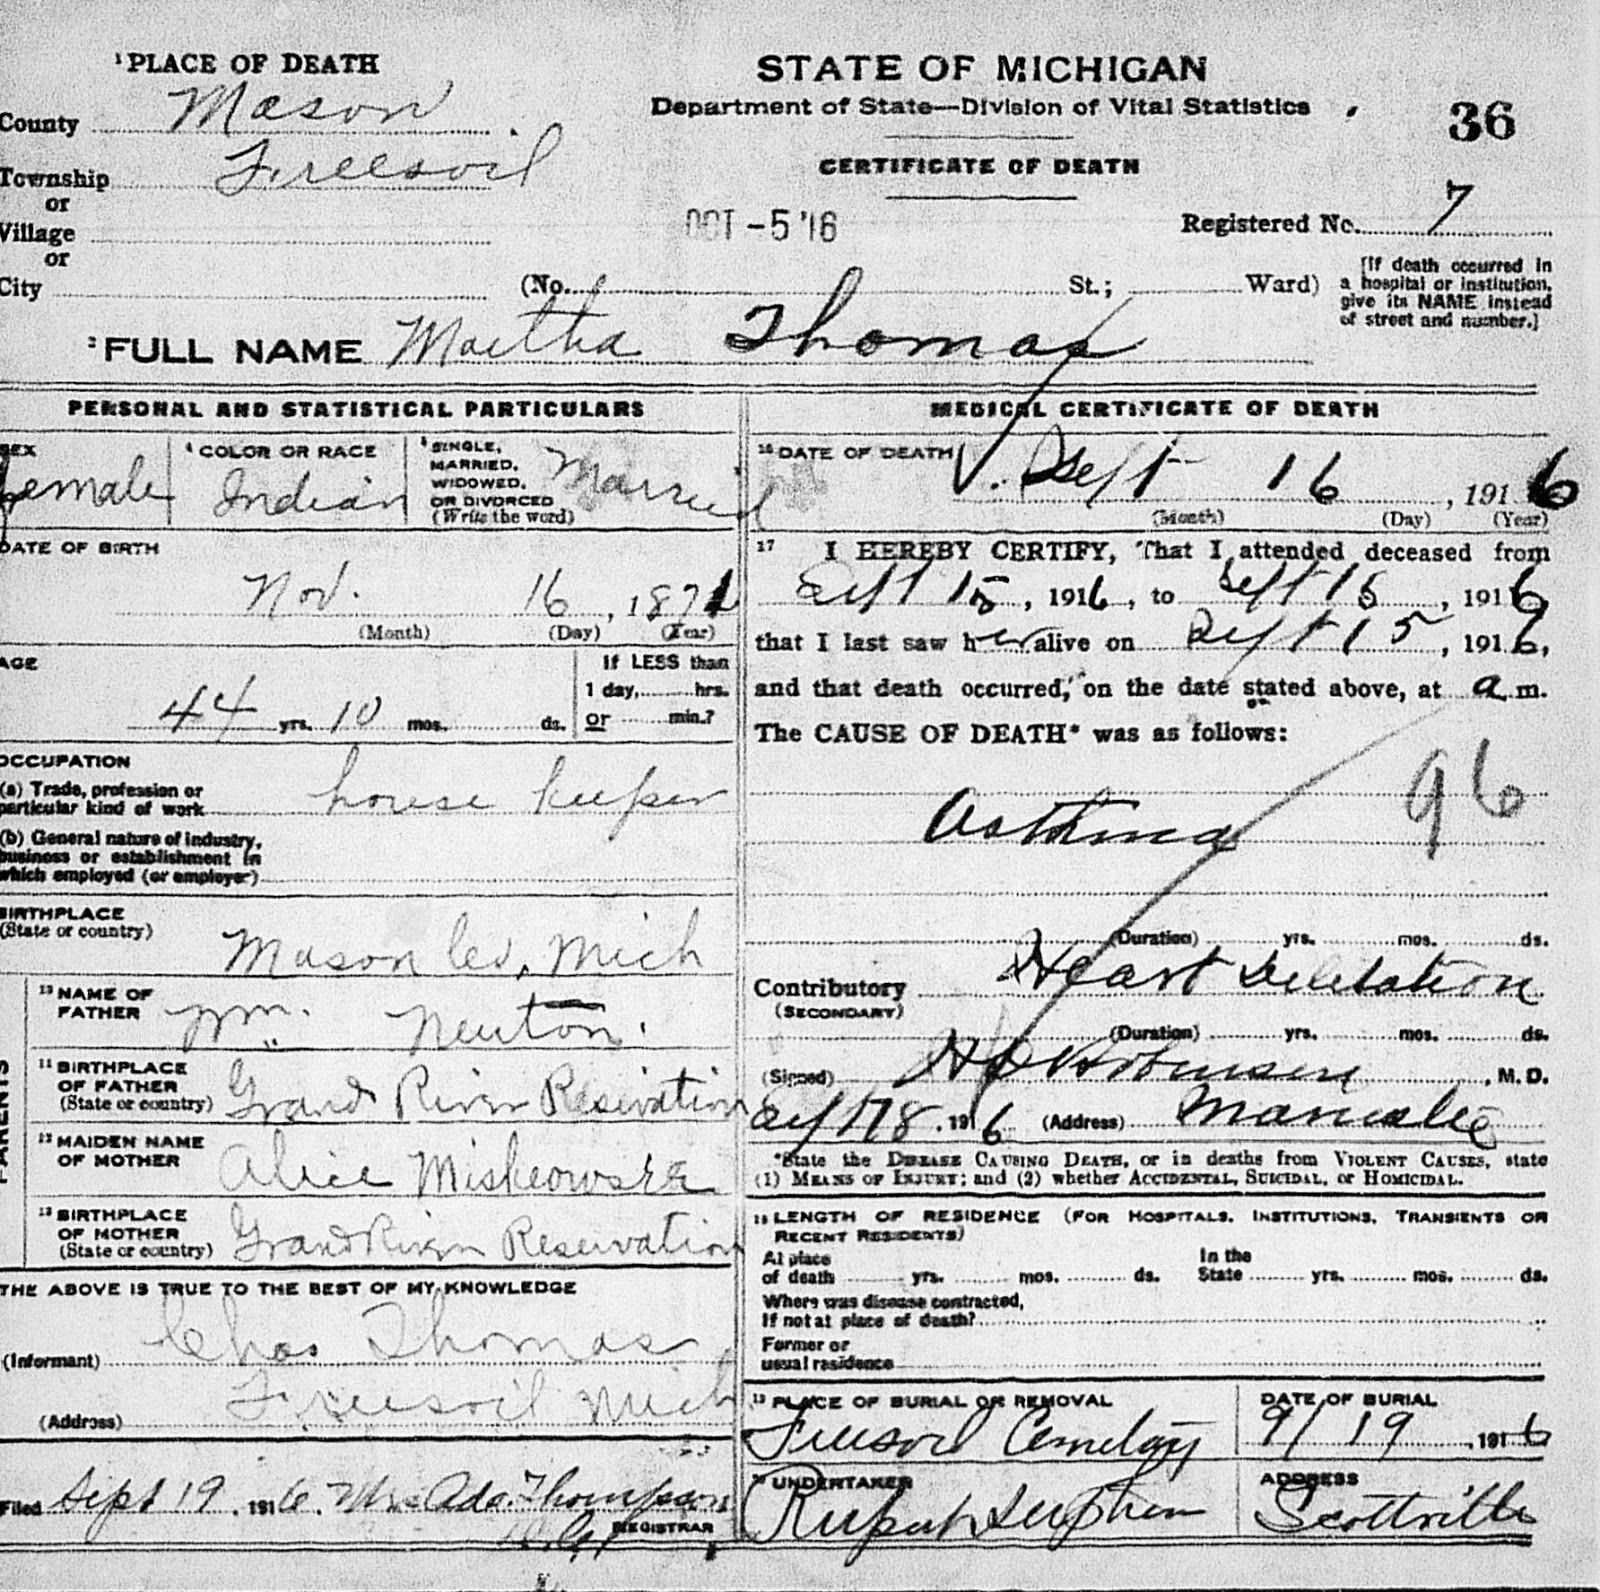 1 PLACE OF DEATH
STATE OF MICHIGAN
Department of State—Division of Vital Statistics
36
CERTIFICATE OF DEATH
County Mason
Township Freesoil
or
Village
or
City
OCT -5 '16
Registered No. 7
(No. St.; Ward)
[If death occurred in
a hospital or institution,
give its NAME instead
of street and number.]
2 FULL NAME Martha Thomas
PERSONAL AND STATISTICAL PARTICULARS
SEX
Female
4 COLOR OR RACE
Indian
5 SINGLE,
MARRIED,
WIDOWED,
OR DIVORCED
(Write the word)
Married
DATE OF BIRTH
Nov. 16, 1871
(Month) (Day) (Year)
AGE
44 yrs. 10 mos. ds.
If LESS than
1 day, hrs.
or min.?
OCCUPATION
(a) Trade, profession or
particular kind of work house keeper
(b) General nature of industry,
business or establishment in
which employed (or employer)
BIRTHPLACE
(State or country)
Mason Co, Mich
PARENTS
10 NAME OF
FATHER
Wm. Newton.
11 BIRTHPLACE
OF FATHER
(State or country)
Grand River Resivation
12 MAIDEN NAME
OF MOTHER
Alice
13 BIRTHPLACE
OF MOTHER
(State or country)
Grand River Reservation
THE ABOVE IS TRUE TO THE BEST OF MY KNOWLEDGE
(Informant) Chas Thomas
(Address) Freesoil Mich
Filed Sept 19, 1916. Mrs Ada Thompson
REGISTRAR
MEDICAL CERTIFICATE OF DEATH
16 DATE OF DEATH
Sept 16, 1916
(Month) (Day) (Year)
17 I HEREBY CERTIFY, That I attended deceased from
Sept 15, 1916, to Sept 15, 1916
that I last saw her alive on Sept 15, 1916,
and that death occurred, on the date stated above, at a m.
The CAUSE OF DEATH* was as follows:
96
Asthma
(Duration) yrs. mos. ds.
Contributory Heart Dilitation
(SECONDARY)
(Duration) yrs. mos. ds.
(Signed) Robinson, M. D.
Sept 18, 1916 (Address) Manistee
*State the DISEASE CAUSING DEATH, or in deaths from VIOLENT CAUSES, state
(1) MEANS OF INJURY; and (2) whether ACCIDENTAL, SUICIDAL, or HOMICIDAL.
18 LENGTH OF RESIDENCE (FOR HOSPITALS, INSTITUTIONS, TRANSIENTS OR
RECENT RESIDENTS)
At place
of death yrs. mos. ds.
In the
State yrs. mos. ds.
Where was disease contracted,
If not at place of death?
Former or
usual residence
19 PLACE OF BURIAL OR REMOVAL
Freesoil Cemetary
DATE OF BURIAL
9/19, 1916
20 UNDERTAKER
ADDRESS
Scottville